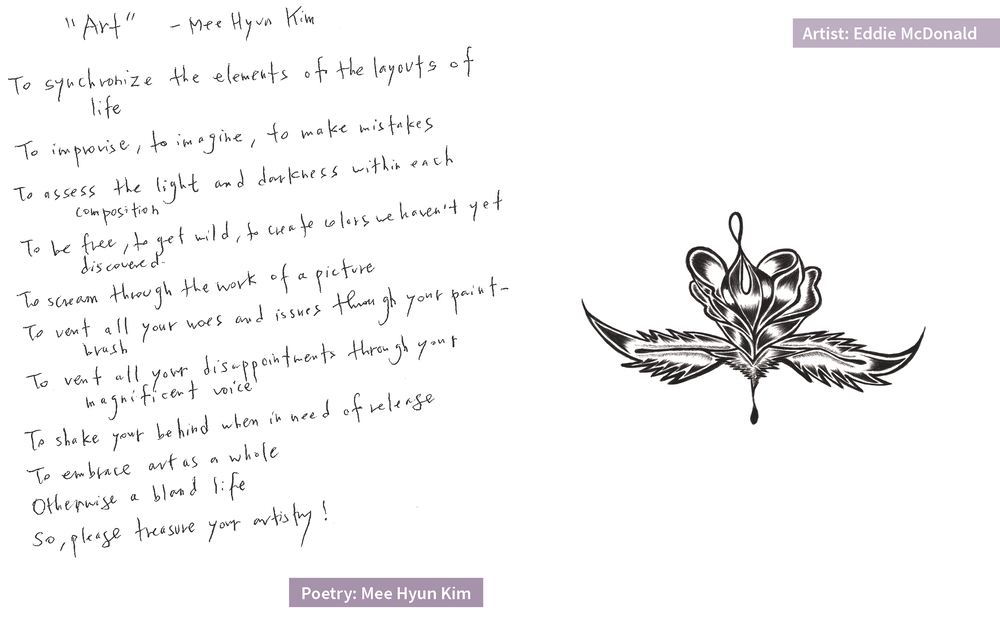 "Art" - Mee Hyun Kim
To synchronize the elements of the layouts of
life
To improvise, to imagine, to make mistakes
To assess the light and darkness within each
composition
To be free, to get wild, to create colors we haven't yet
discovered.
To scream through the work of a picture
To vent all your woes and issues through your paint-
brush
To vent all your disappointments through your
magnificent voice
To shake your behind when in need of release
To embrace art as a whole
Otherwise a bland life
So, please treasure your artistry!
Poetry: Mee Hyun Kim
Artist: Eddie McDonald